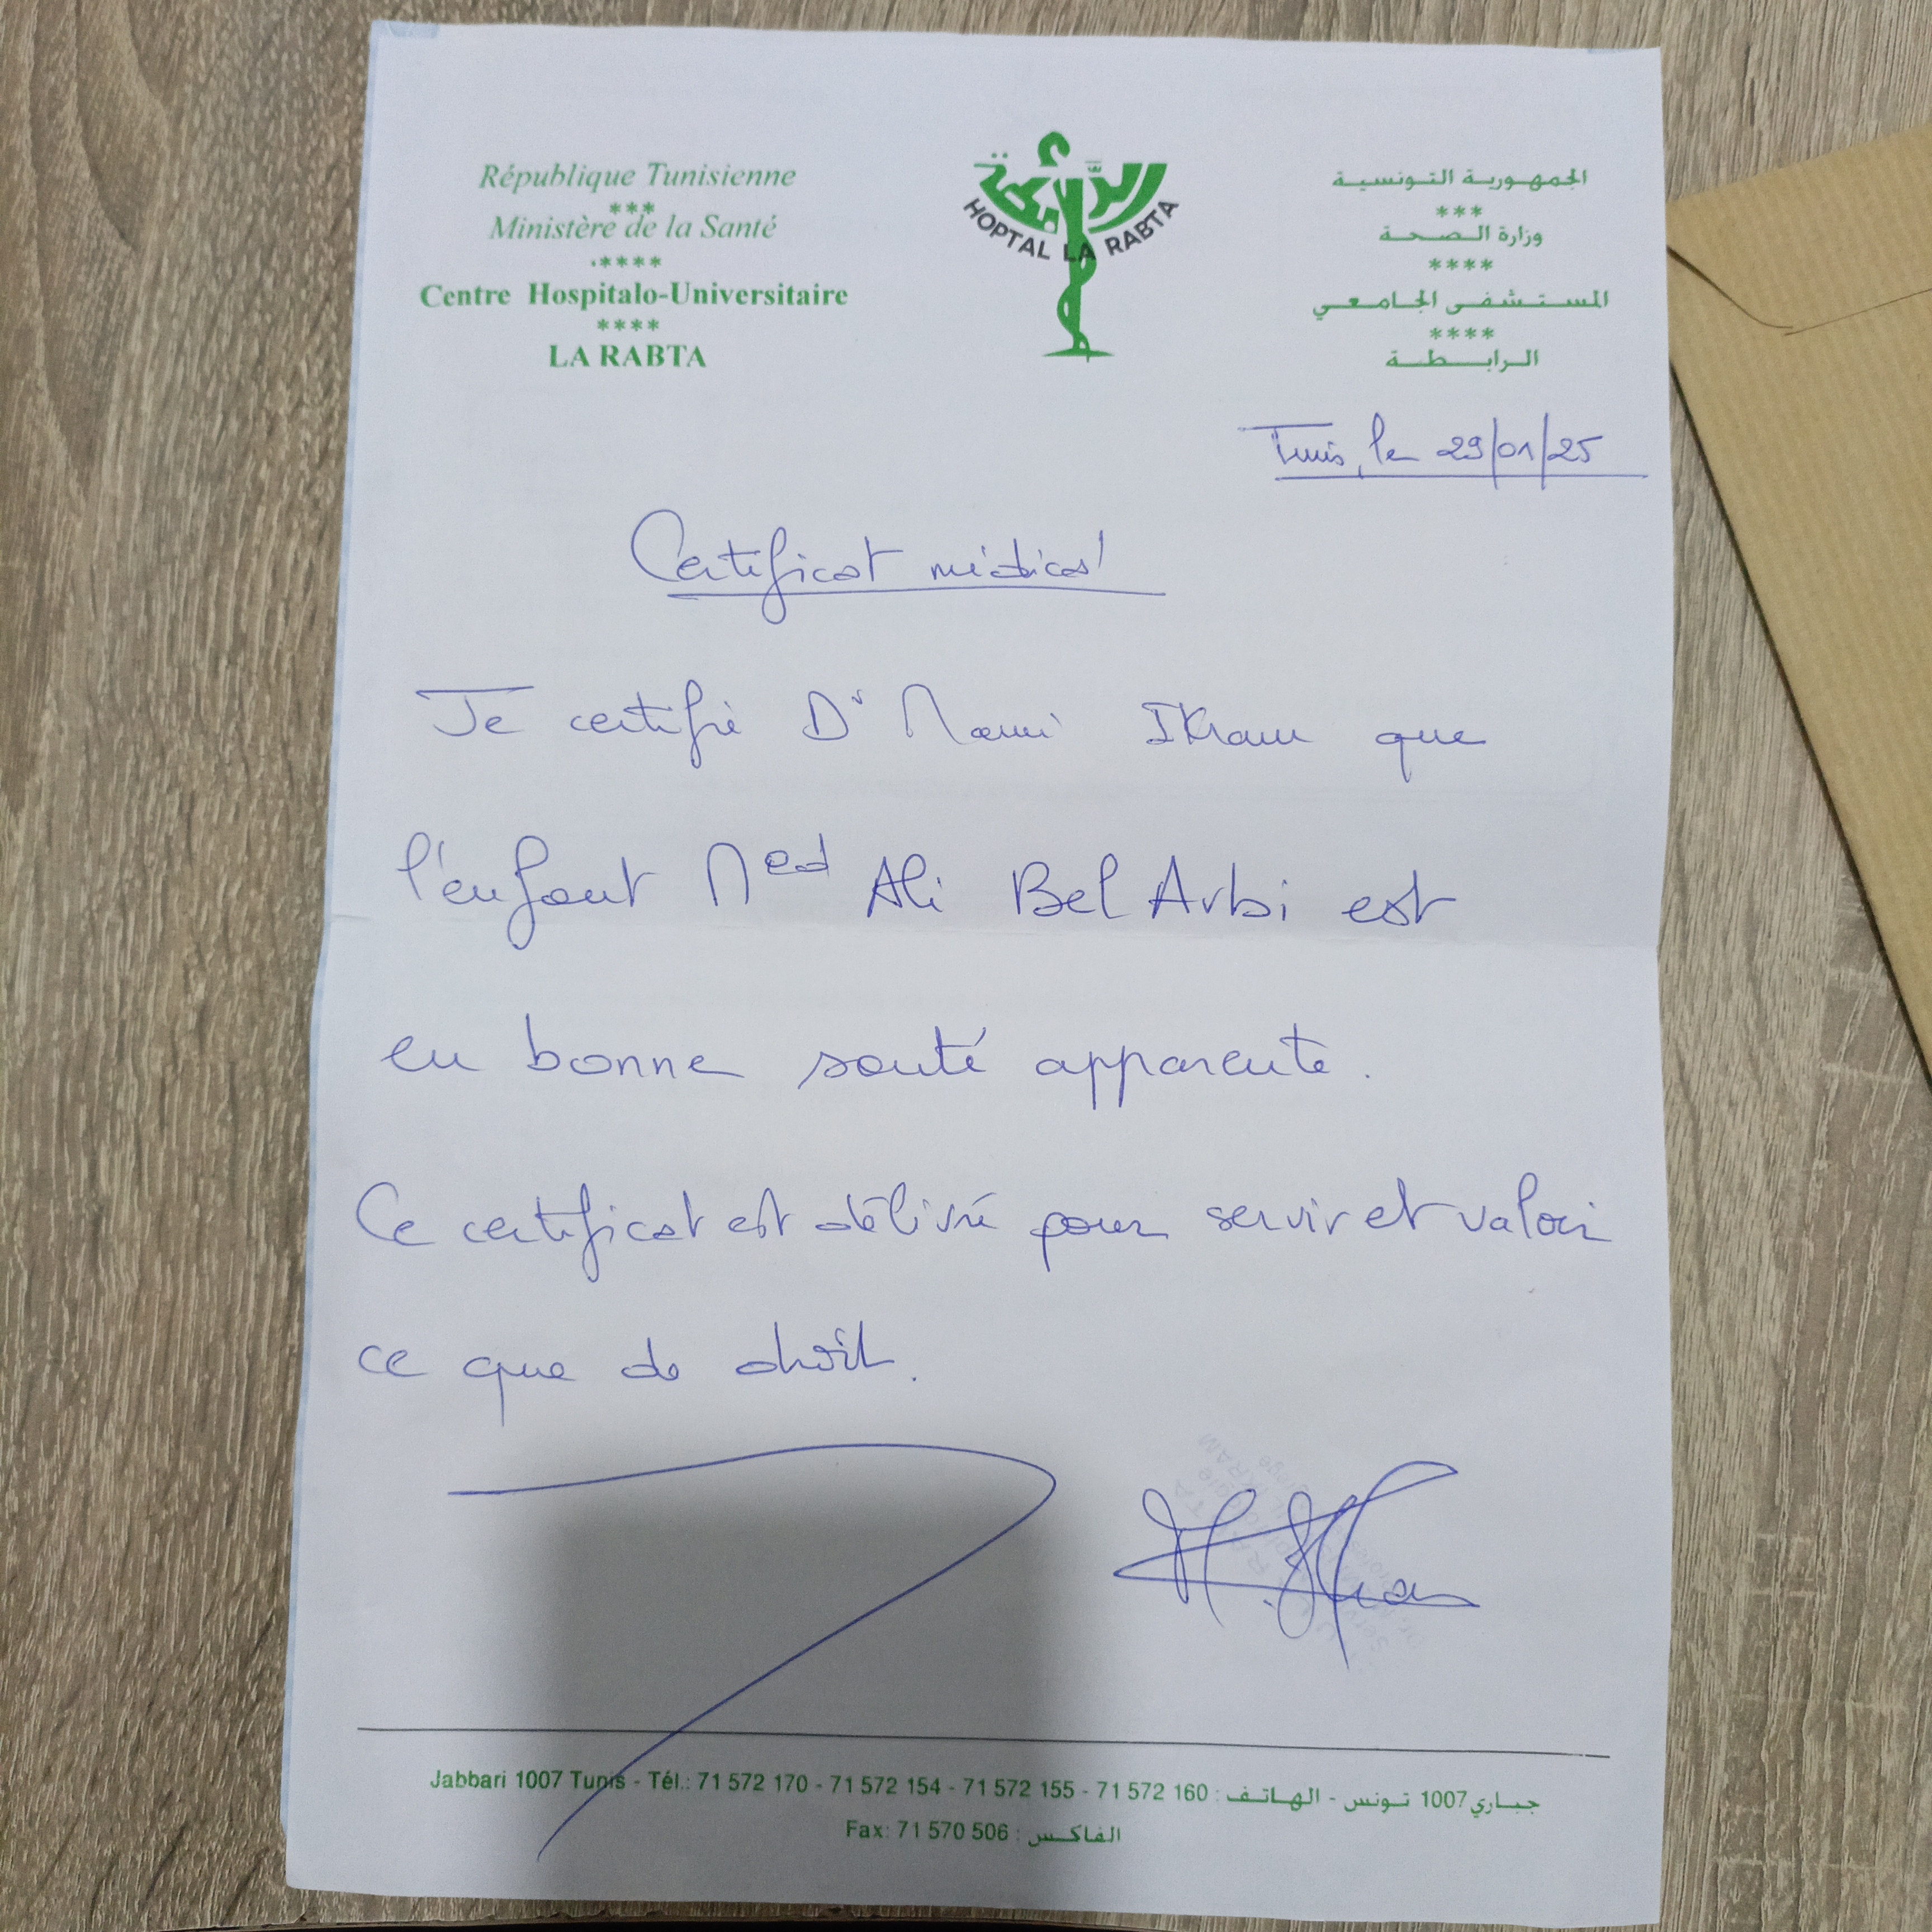 République Tunisienne
***
Ministère de la Santé
****
Centre Hospitalo-Universitaire
****
LA RABTA
الرابطة
HOPTAL LA RABTA
الجمهورية التونسية
***
وزارة الصحة
****
المستشفى الجامعي
****
الرابطة
Tunis, le 29/01/25
Certificat médical
Je certifie Dr Mami Ikram que
l'enfant Med Ali Bel Arbi est
en bonne santé apparente.
Ce certificat est délivré pour servir et valoir
ce que de droit.
M. Ikram
Jabbari 1007 Tunis - Tél.: 71 572 170 - 71 572 154 - 71 572 155 - 71 572 160 : جباري 1007 تونس - الهاتف
Fax: 71 570 506 : الفاكس